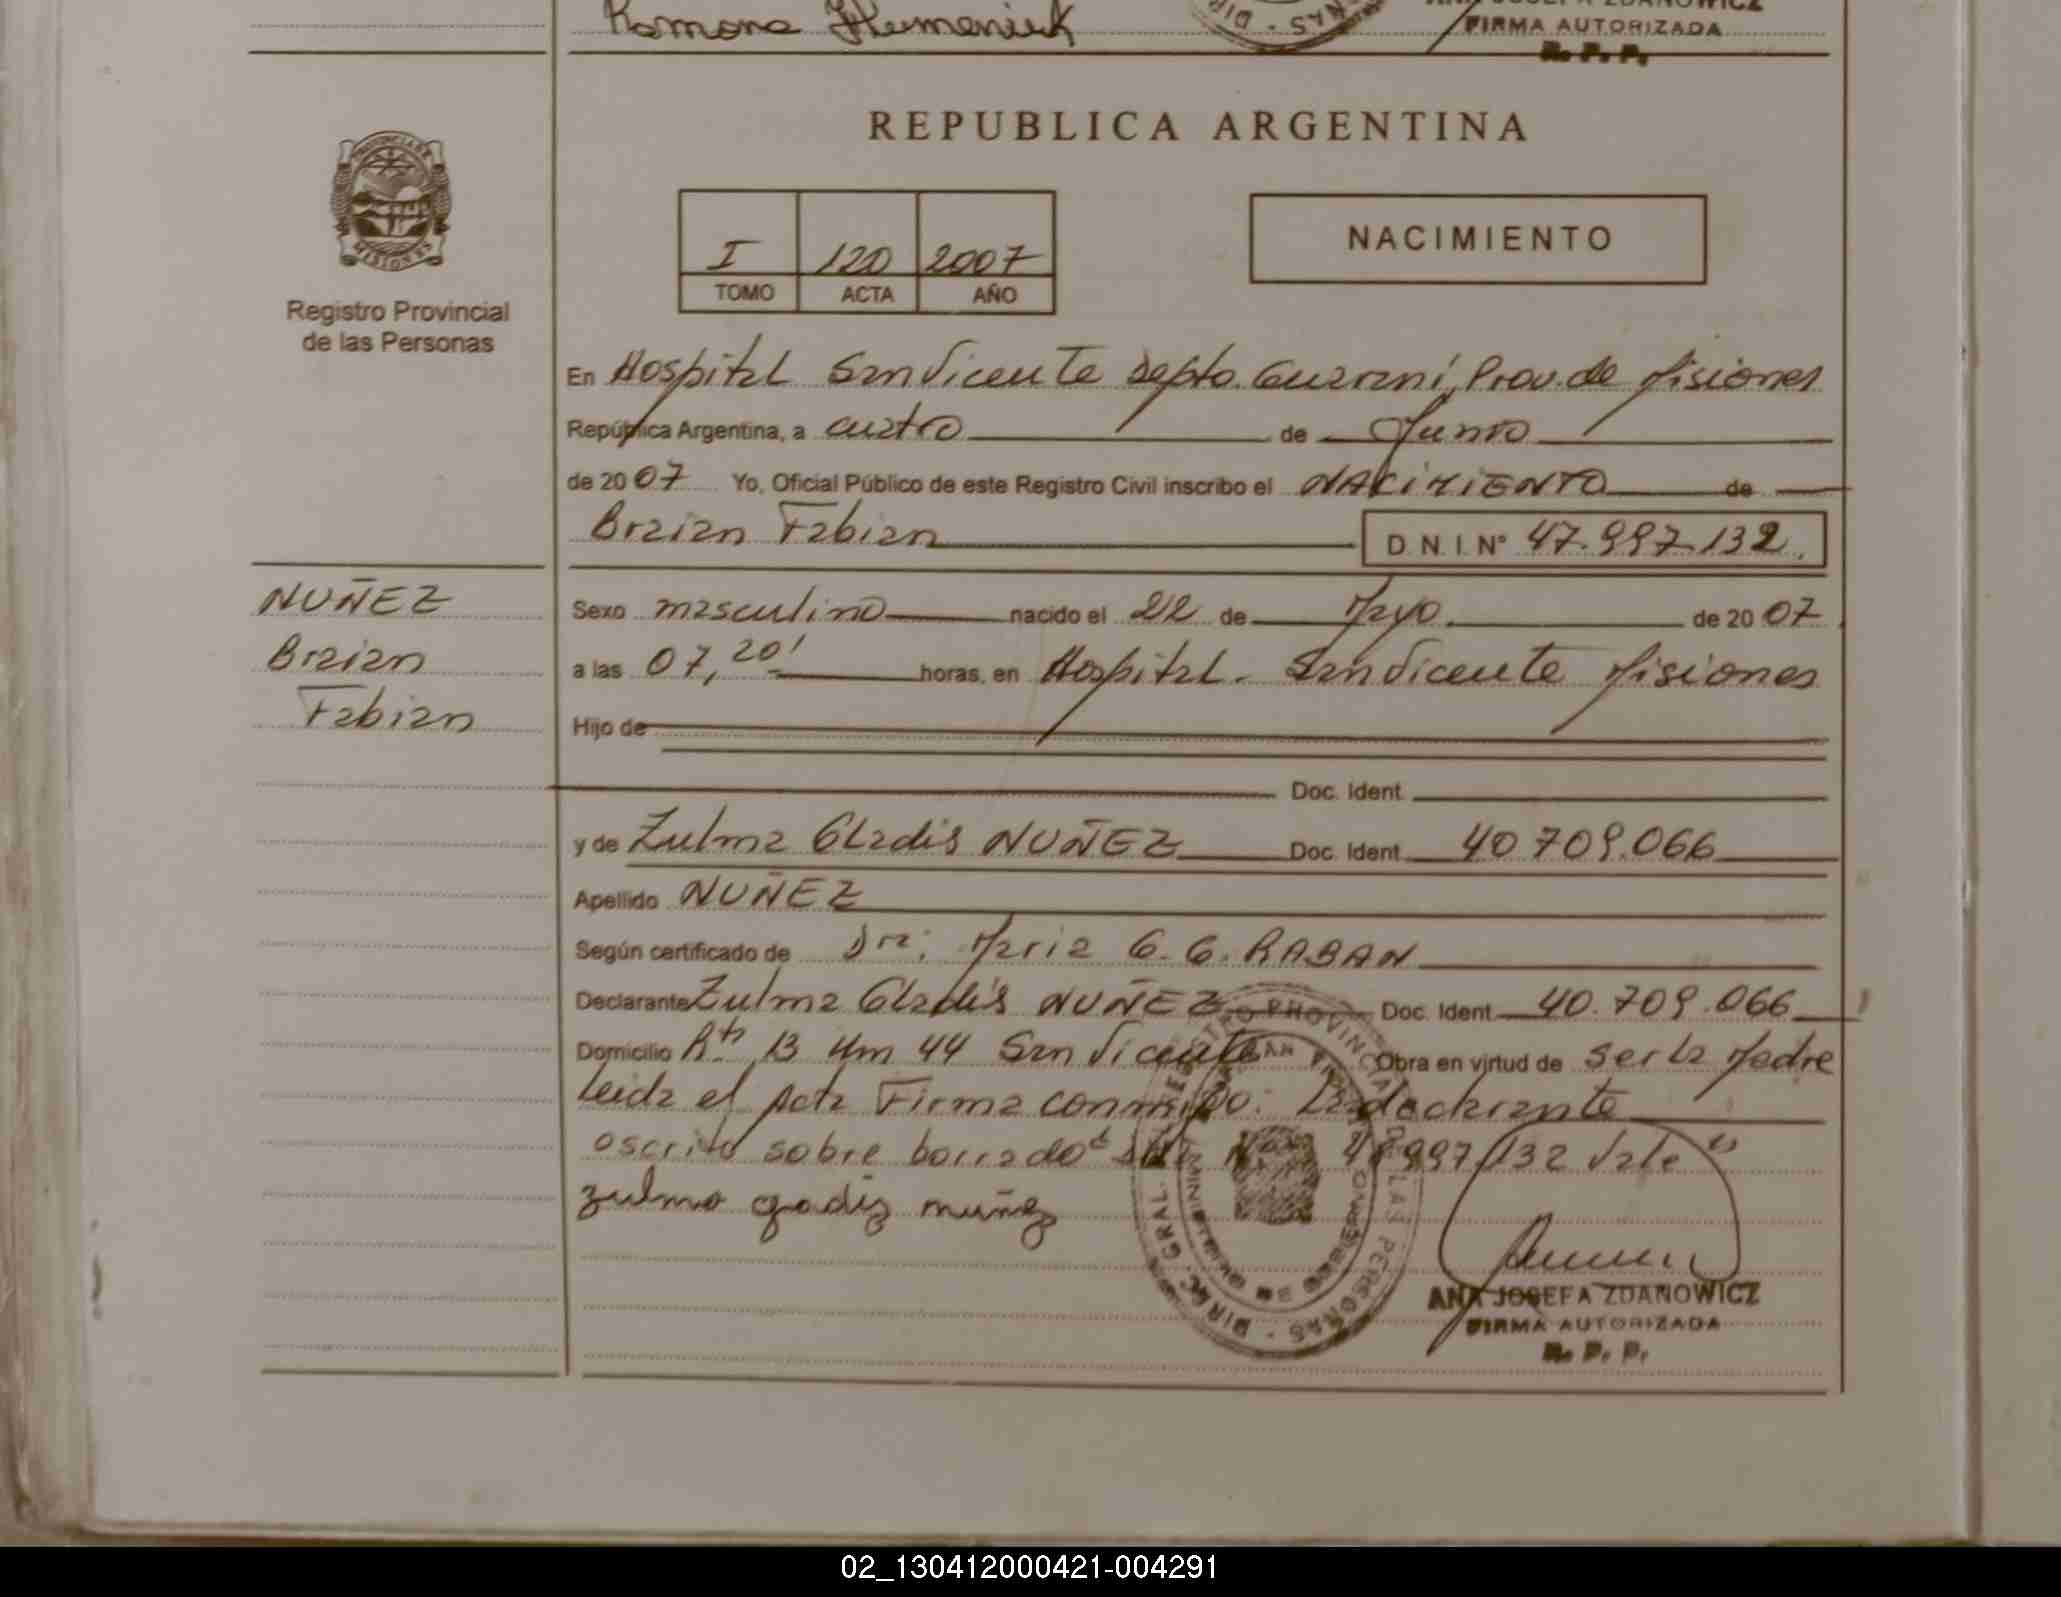 Ramona Humeniuk
FIRMA AUTORIZADA
R. P. P.
REPUBLICA ARGENTINA
PROVINCIA DE MISIONES
Registro Provincial
de las Personas
I 120 2007
TOMO ACTA AÑO
NACIMIENTO
En Hospital San Vicente Depto. Guaraní, Prov. de Misiones
República Argentina, a cuatro de Junio
de 2007 Yo, Oficial Público de este Registro Civil inscribo el NACIMIENTO de
Braian Fabian D.N.I. Nº 47.997.132.
NUÑEZ
Braian
Fabian
Sexo masculino nacido el 22 de Mayo de 2007
a las 07,20' horas, en Hospital. San Vicente Misiones
Hijo de
Doc. Ident
y de Zulma Gladis NUÑEZ Doc. Ident 40 709.066
Apellido NUÑEZ
Según certificado de Dra; Maria G. G. RABAN
Declarante Zulma Gladis NUÑEZ Doc. Ident 40.709.066
Domicilio Rta 13 Km 44 San Vicente Obra en virtud de ser la Madre
Leida el Acta Firma conmigo: La declarante
escrito sobre borrado 997/132 Vale"
zulma gadis nuñez
ANA JOSEFA ZDANOWICZ
FIRMA AUTORIZADA
R. P. P.
02_130412000421-004291